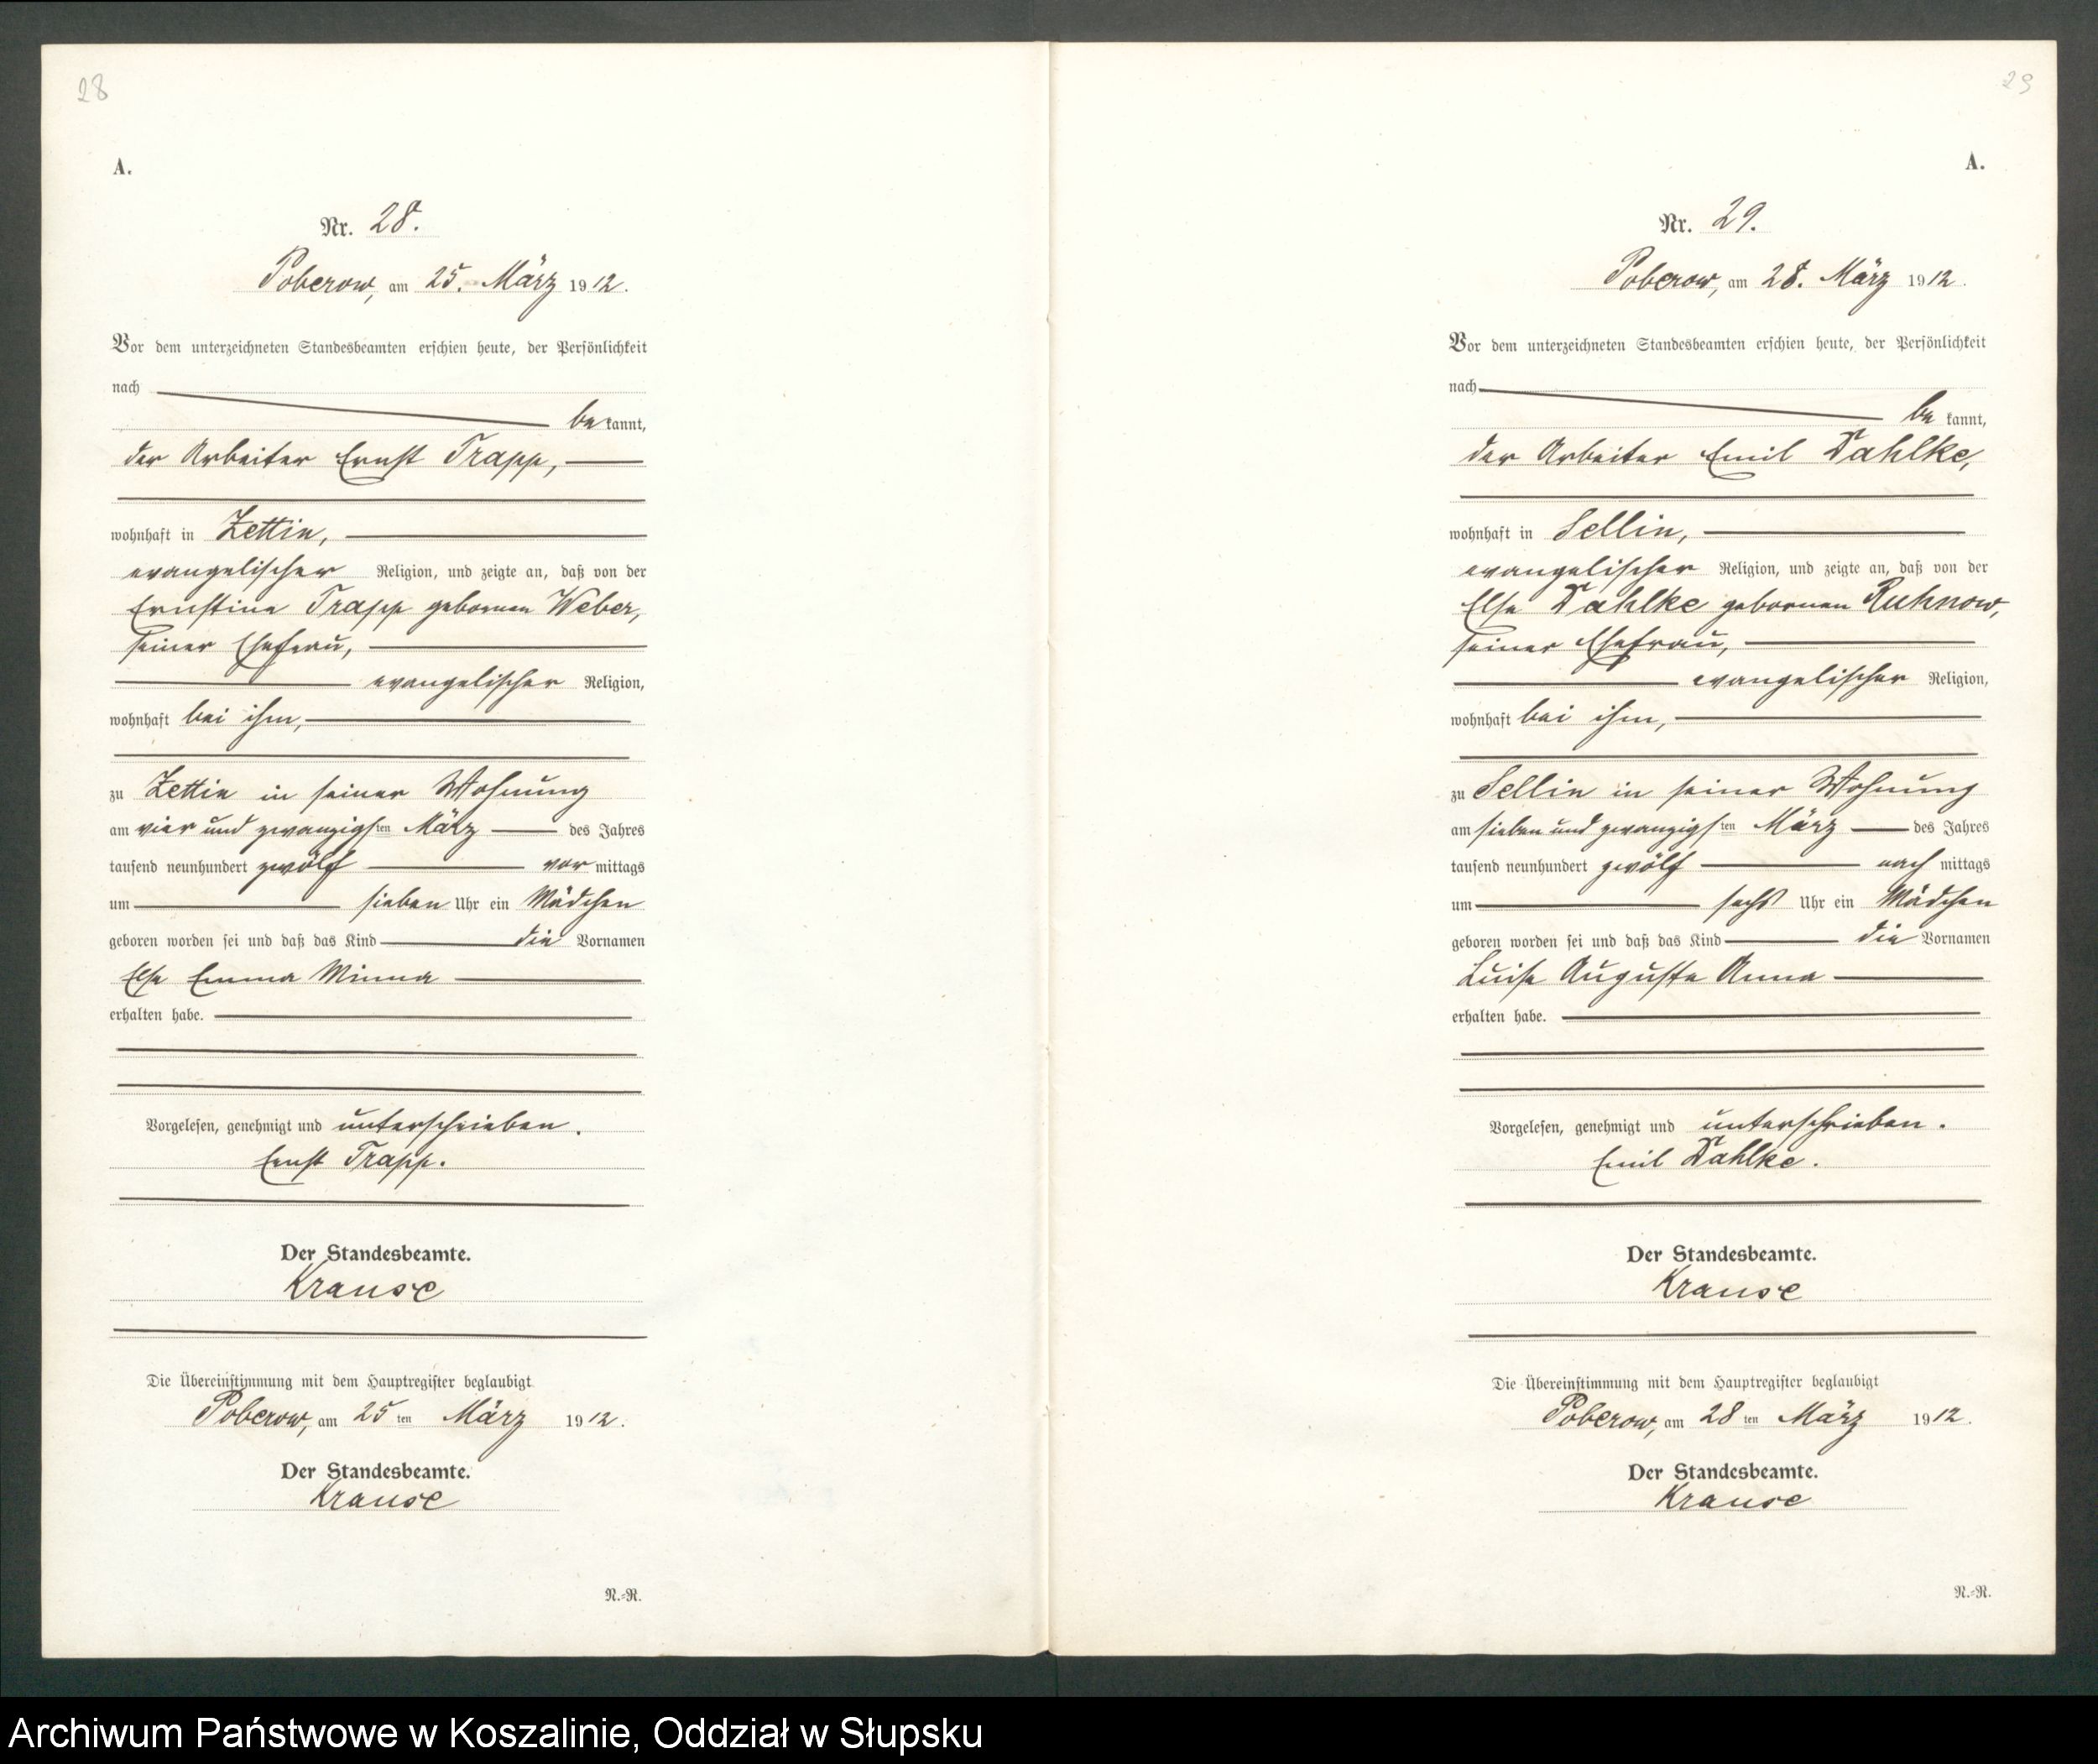 28
A.
Nr. 28.
Poberow, am 25. März 1912.
Vor dem unterzeichneten Standesbeamten erschien heute, der Persönlichkeit
nach
be kannt,
der Arbeiter Ernst Trapp,
wohnhaft in Zettin,
evangelischer Religion, und zeigte an, daß von der
Ernstine Trapp gebornen Weber,
seiner Ehefrau,
evangelischer Religion,
wohnhaft bei ihm,
zu Zettin in seiner Wohnung
am vier und zwanzigsten März des Jahres
tausend neunhundert zwölf vor mittags
um sieben Uhr ein Mädchen
geboren worden sei und daß das Kind die Vornamen
Else Emma Minna
erhalten habe.
Vorgelesen, genehmigt und unterschrieben.
Ernst Trapp.
Der Standesbeamte.
Krause
Die Übereinstimmung mit dem Hauptregister beglaubigt
Poberow, am 25 ten März 1912.
Der Standesbeamte.
Krause
N.-R.
29
A.
Nr. 29.
Poberow, am 28. März 1912.
Vor dem unterzeichneten Standesbeamten erschien heute, der Persönlichkeit
nach
be kannt,
der Arbeiter Emil Dahlke,
wohnhaft in Sellin,
evangelischer Religion, und zeigte an, daß von der
Else Dahlke gebornen Ruhnow,
seiner Ehefrau,
evangelischer Religion,
wohnhaft bei ihm,
zu Sellin in seiner Wohnung
am sieben und zwanzigsten März des Jahres
tausend neunhundert zwölf nach mittags
um sechs Uhr ein Mädchen
geboren worden sei und daß das Kind die Vornamen
Luise Auguste Anna
erhalten habe.
Vorgelesen, genehmigt und unterschrieben.
Emil Dahlke.
Der Standesbeamte.
Krause
Die Übereinstimmung mit dem Hauptregister beglaubigt
Poberow, am 28 ten März 1912.
Der Standesbeamte.
Krause
N.-R.
Archiwum Państwowe w Koszalinie, Oddział w Słupsku